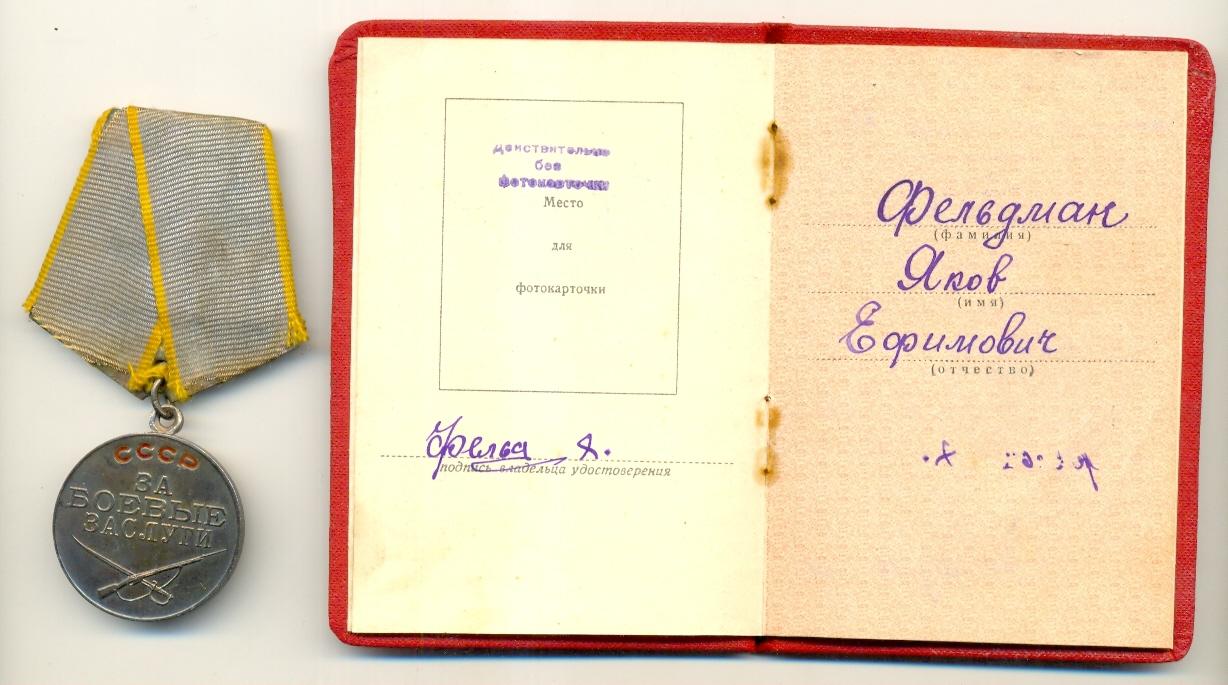 СССР
ЗА
БОЕВЫЕ
ЗАСЛУГИ
Действительно
без
фотокарточки
Место
для
фотокарточки
подпись владельца удостоверения
Фельдман
(фамилия)
Яков
(имя)
Ефимович
(отчество)